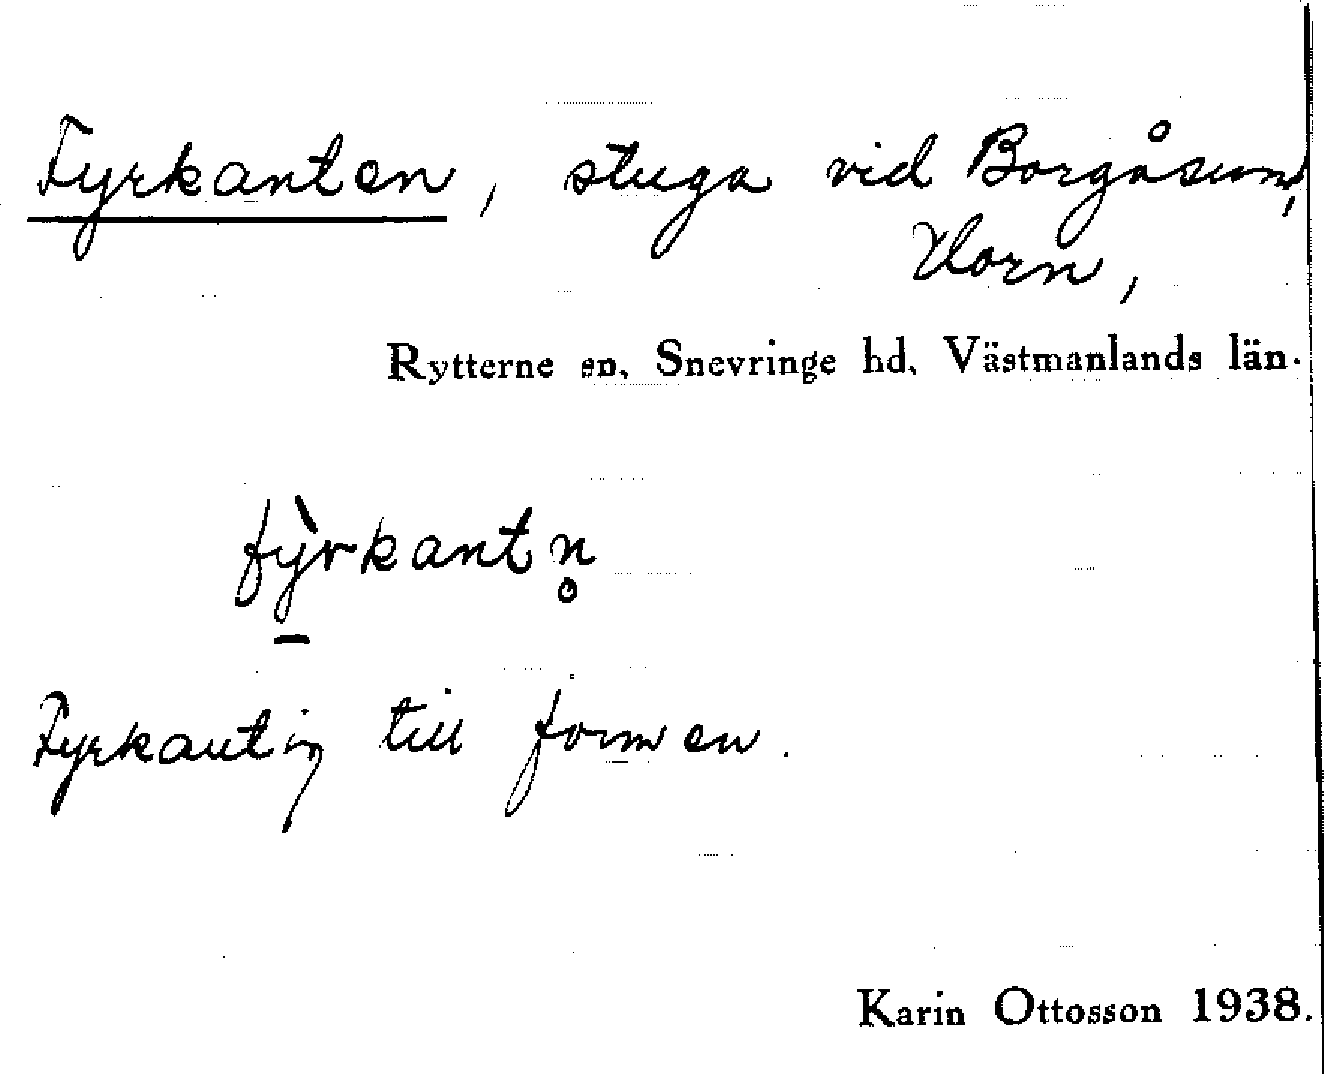 Fyrkanten, stuga vid Borgåsund,
Horn,
Rytterne sn, Snevringe hd, Västmanlands län.
fỳ̠rkantn̥
Fyrkantig till formen.
Karin Ottosson 1938.